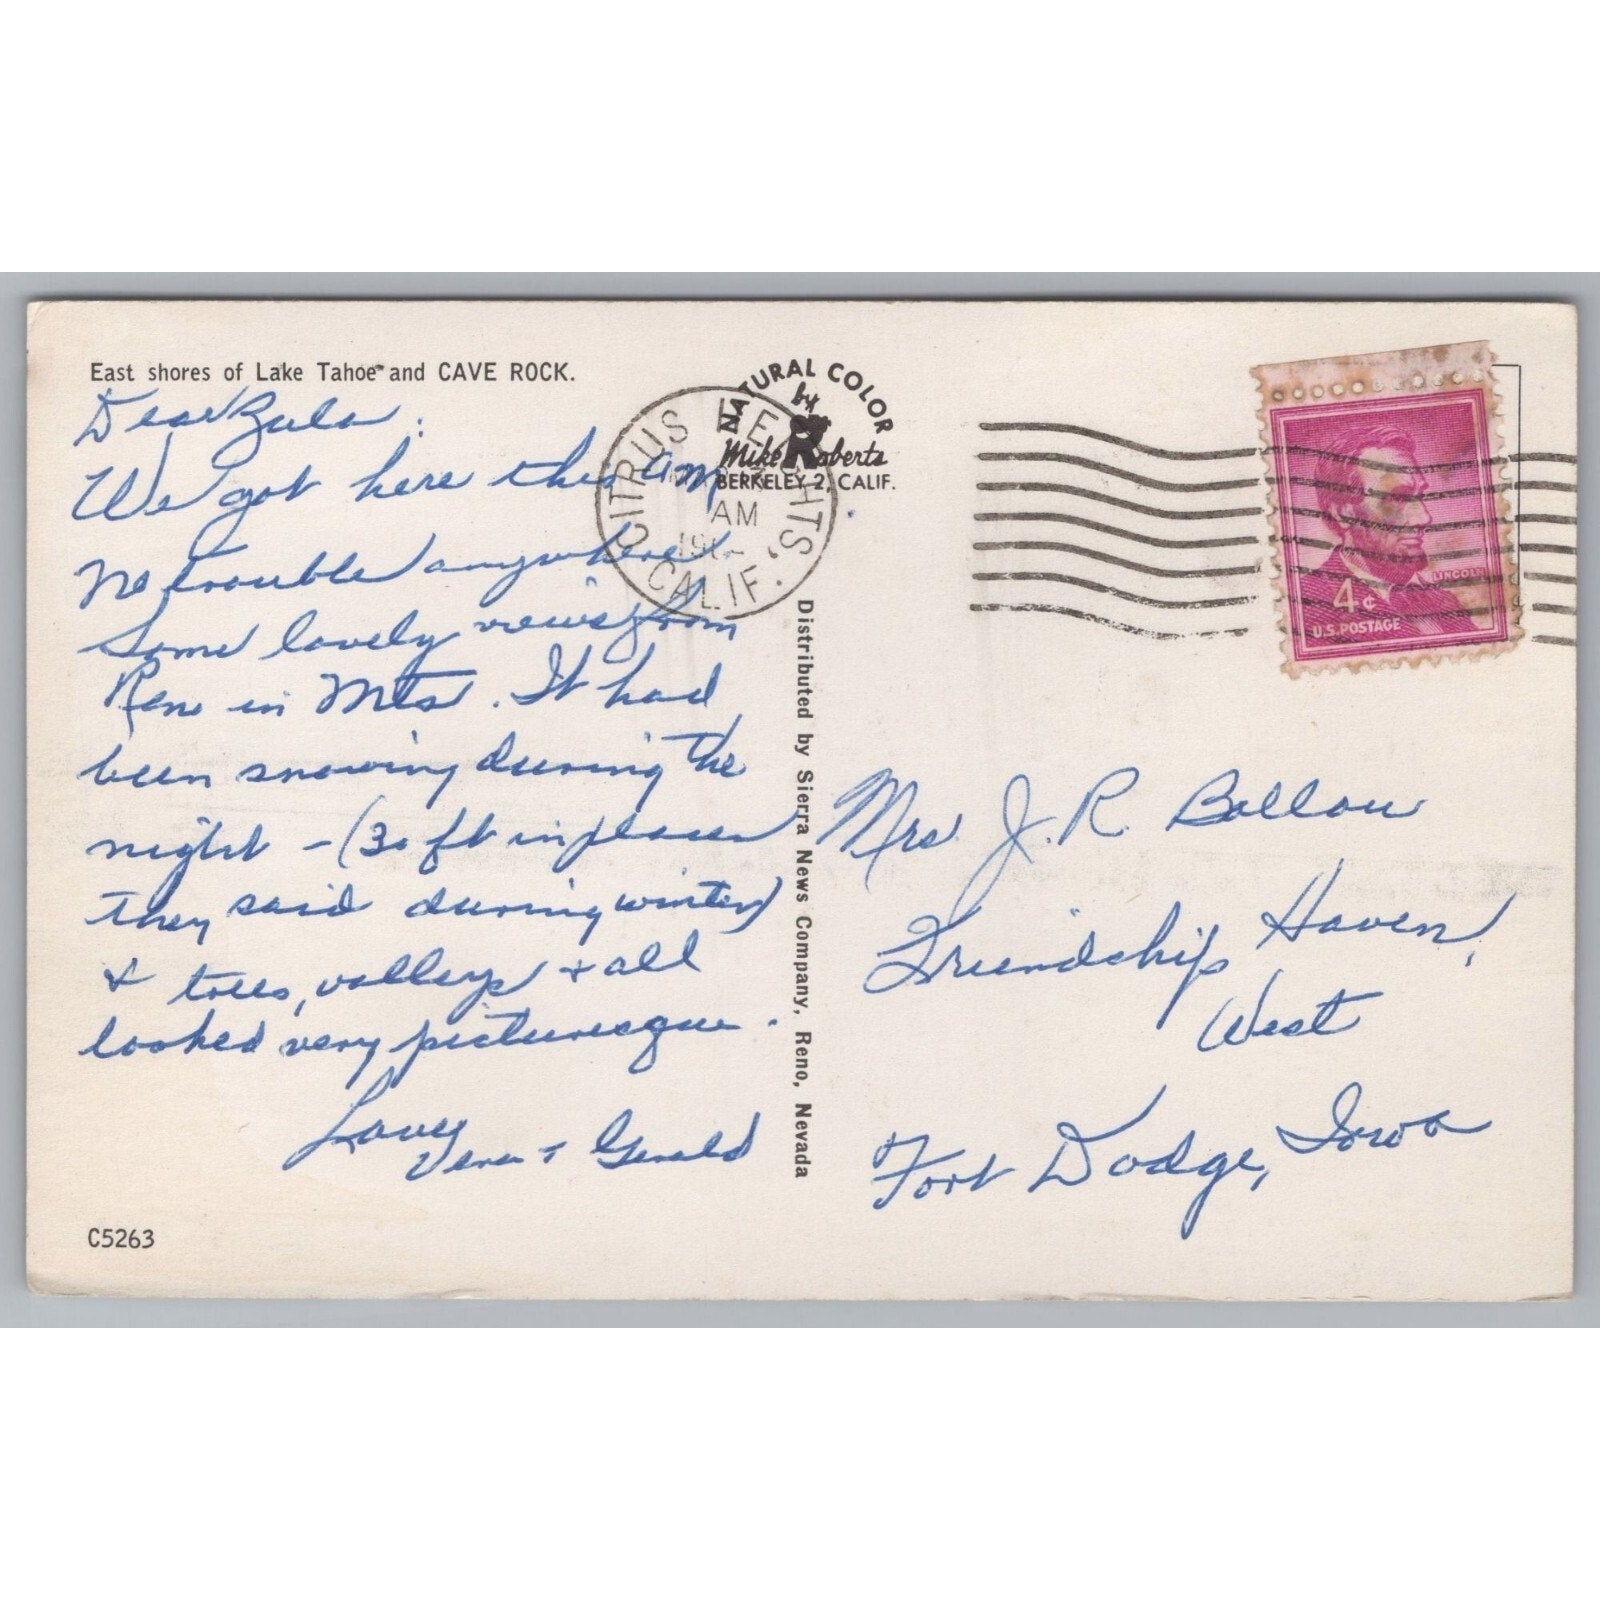 East shores of Lake Tahoe and CAVE ROCK.
Dear Zula:
We got here this am
No trouble anywhere &
some lovely views from
Reno in Mts. It had
been snowing during the
night - (30 ft in places
they said during winter)
& trees, valleys & all
looked very picturesque.
Love,
Vera & Gerald
C5263
NATURAL COLOR
by
Mike Roberts
BERKELEY 2, CALIF.
CITRUS HEIGHTS
AM
CALIF.
Distributed by Sierra News Company, Reno, Nevada
LINCOLN
4¢
U.S. POSTAGE
Mrs J. R. Ballou
Friendship Haven,
West
Fort Dodge, Iowa